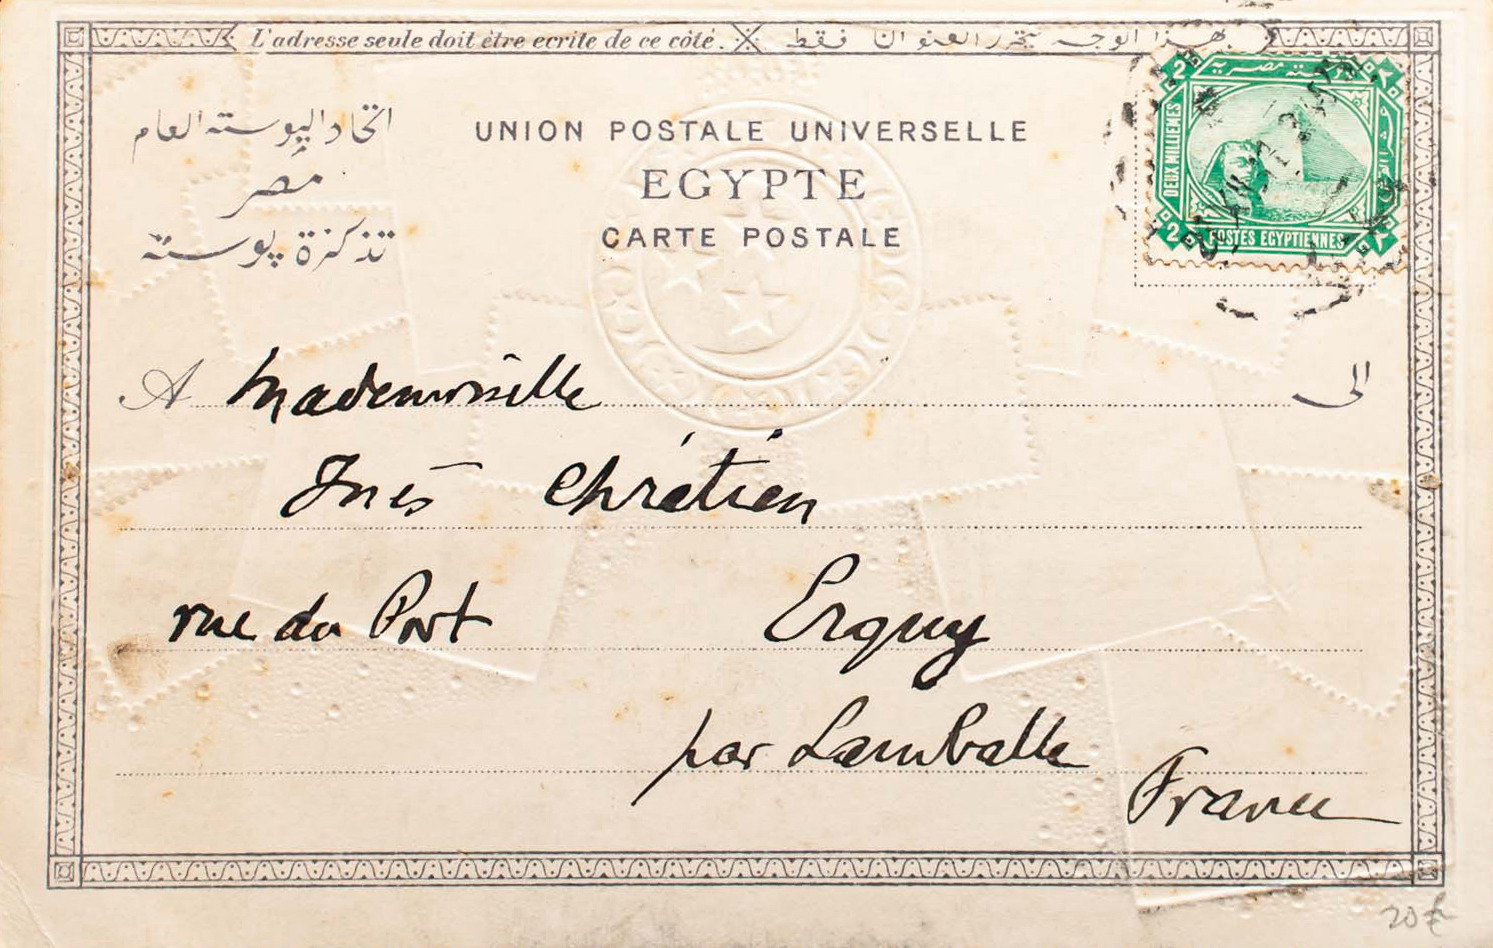 L'adresse seule doit être ecrite de ce côté. بهذا الوجه يتحرر العنوان فقط
اتحاد البوسته العام
مصر
تذكرة بوسته
UNION POSTALE UNIVERSELLE
EGYPTE
CARTE POSTALE
2
DEUX MILLIEMES
2
POSTES EGYPTIENNES
A Mademoiselle الى
Inès Chrétien
rue du Port Erquy
par Lamballe
France
20 €